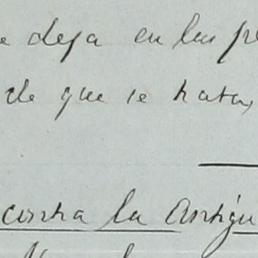 e deja en las pe
de que se trata,
contra la Antigu